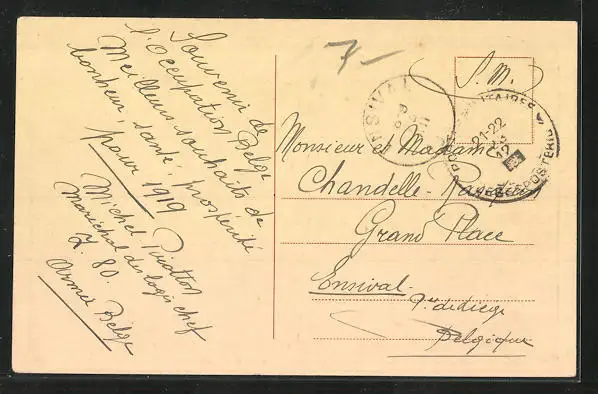 Souvenir de
l'Occupation Belge
Meilleurs souhaits de
bonheur, santé, prospérité
pour 1919
Michel
Maréchal des logis chef
Z. 80.
Armée Belge
7-
S. M.
ENSIVAL
POSTES MILITAIRES
21-22
12
Monsieur et Madame
Chandelle-
Grand'Place
Ensival
Belgique